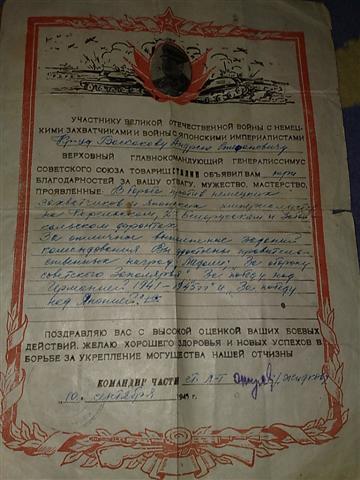 УЧАСТНИКУ ВЕЛИКОЙ ОТЕЧЕСТВЕННОЙ ВОЙНЫ С НЕМЕЦ-
КИМИ ЗАХВАТЧИКАМИ И ВОЙНЫ С ЯПОНСКИМИ ИМПЕРИАЛИСТАМИ
Андрею Степановичу
ВЕРХОВНЫЙ ГЛАВНОКОМАНДУЮЩИЙ ГЕНЕРАЛИССИМУС
СОВЕТСКОГО СОЮЗА ТОВАРИЩ СТАЛИН ОБЪЯВИЛ ВАМ три
БЛАГОДАРНОСТЕЙ ЗА ВАШУ ОТВАГУ, МУЖЕСТВО, МАСТЕРСТВО,
ПРОЯВЛЕННЫЕ В борьбе против немецких
захватчиков и Японских империалистов
на Карельском, 2м Белорусском и Забай-
кальском фронтах
За отличное выполнение заданий
командования Вы удостоены правитель-
ственных наград: Медали "За оборону
советского Заполярья" "За победу над
Германией 1941-1945гг" и "За победу
над Японией"
ПОЗДРАВЛЯЮ ВАС С ВЫСОКОЙ ОЦЕНКОЙ ВАШИХ БОЕВЫХ
ДЕЙСТВИЙ, ЖЕЛАЮ ХОРОШЕГО ЗДОРОВЬЯ И НОВЫХ УСПЕХОВ В
БОРЬБЕ ЗА УКРЕПЛЕНИЕ МОГУЩЕСТВА НАШЕЙ ОТЧИЗНЫ
КОМАНДИР ЧАСТИ ст. л-т
10 сентября 194 г.